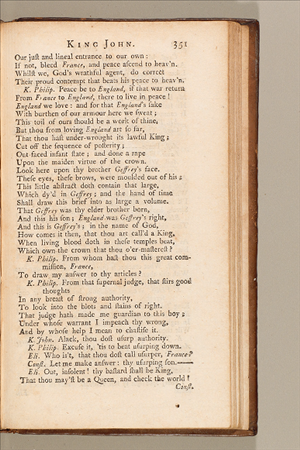 KING JOHN. 351
Our juſt and lineal entrance to our own:
If not, bleed France, and peace aſcend to heav'n.
Whilſt we, God's wrathful agent, do correct
Their proud contempt that beats his peace to heav'n.
K. Philip. Peace be to England, if that war return
From France to England, there to live in peace!
England we love: and for that England's ſake
With burthen of our armour here we ſweat;
This toil of ours ſhould be a work of thine,
But thou from loving England art ſo far,
That thou haſt under-wrought its lawful King;
Cut off the ſequence of poſterity;
Out-faced infant ſtate; and done a rape
Upon the maiden virtue of the crown.
Look here upon thy brother Geffrey's face.
Theſe eyes, theſe brows, were moulded out of his:
This little abſtract doth contain that large,
Which dy'd in Geffrey; and the hand of time
Shall draw this brief into as large a volume.
That Geffrey was thy elder brother born,
And this his ſon; England was Geffrey's right,
And this is Geffrey's: in the name of God,
How comes it then, that thou art call'd a King,
When living blood doth in theſe temples beat,
Which own the crown that thou o'er-maſtereſt?
K. John. From whom haſt thou this great com-
miſſion, France,
To draw my anſwer to thy articles?
K. Philip. From that ſupernal judge, that ſtirs good
thoughts
In any breaſt of ſtrong authority,
To look into the blots and ſtains of right.
That judge hath made me guardian to this boy;
Under whoſe warrant I impeach thy wrong,
And by whoſe help I mean to chaſtiſe it.
K. John. Alack, thou doſt uſurp authority.
K. Philip. Excuſe it, 'tis to beat uſurping down.
Eli. Who is't, that thou doſt call uſurper, France?
Conſt. Let me make anſwer: thy uſurping ſon.——
Eli. Out, inſolent! thy baſtard ſhall be King,
That thou may'ſt be a Queen, and check the world!
Conſt.